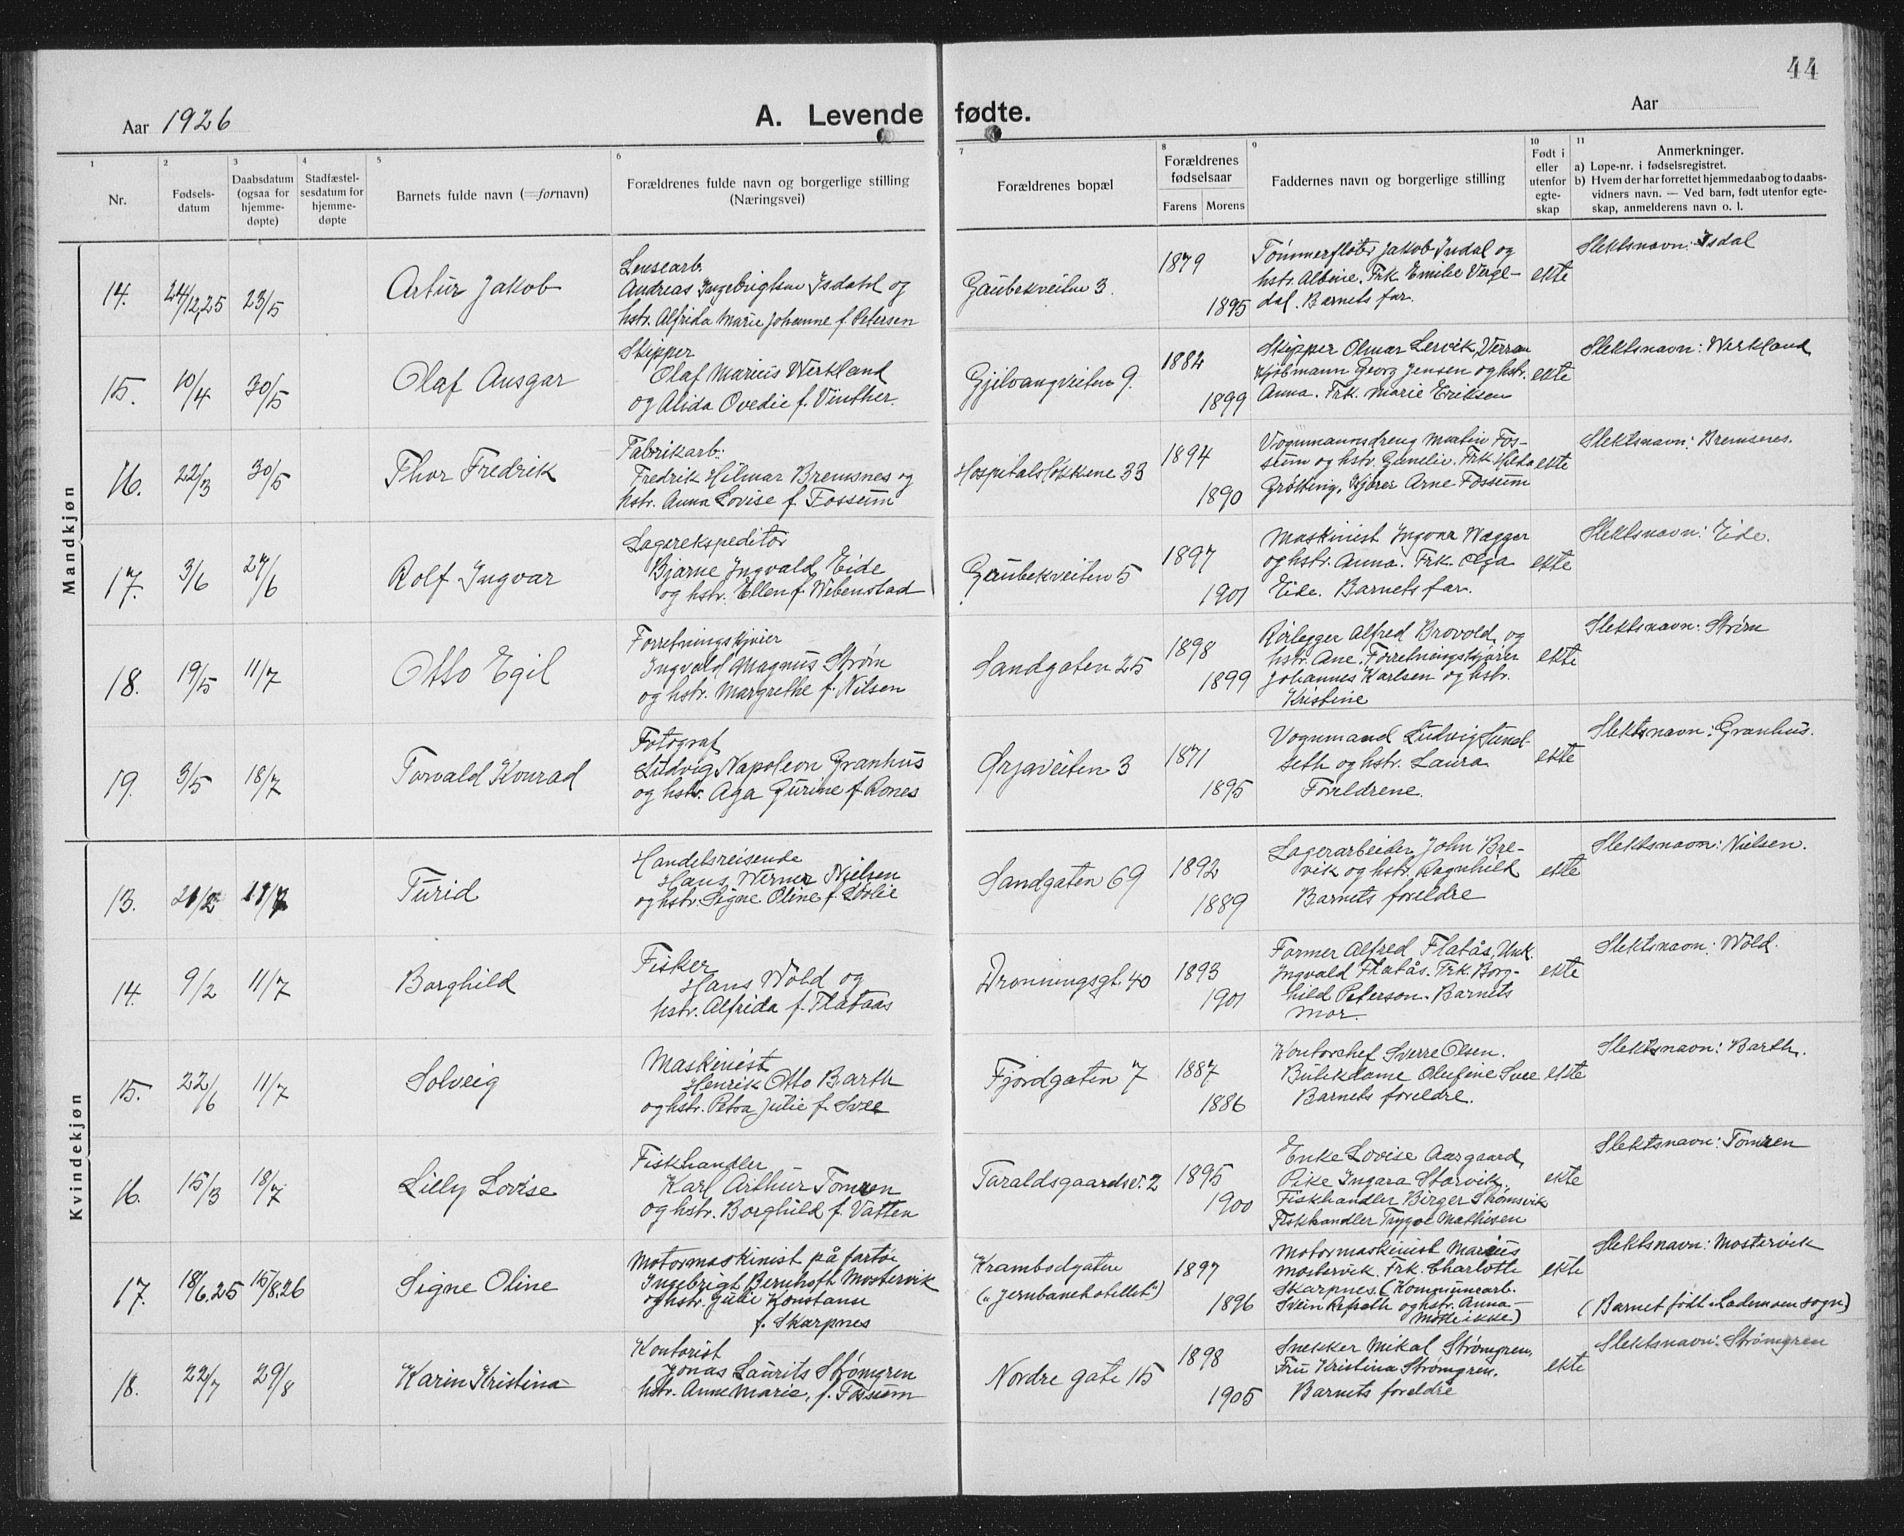 44
Aar 1926
A. Levende fødte.
Aar
1 2 3 4 5 6 7 8 9 10 11
Nr.
Fødsels-
datum
Daabsdatum
(ogsaa for
hjemme-
døpte)
Stadfæstel-
sesdatum for
hjemme-
døpte
Barnets fulde navn (=fornavn)
Forældrenes fulde navn og borgerlige stilling
(Næringsvei)
Forældrenes bopæl
Forældrenes
fødselsaar
Farens Morens
Faddernes navn og borgerlige stilling
Født i
eller
utenfor
egte-
skap
Anmerkninger.
a) Løpe-nr. i fødselsregistret.
b) Hvem der har forrettet hjemmedaab og to daabs-
vidners navn. — Ved barn, født utenfor egte-
skap, anmelderens navn o. l.
Mandkjøn
14. 24/12,25 23/5 Artur Jakob
Lensearb.
Andreas Ingebrigtsen Isdahl og
hstr. Alfrida Marie Johanne f. Petersen
Gaubekveiten 3.
1879
1895
Tømmerfløter Jakob Isdal og
hstr. Albine. Frk Emilie Vogl-
dal. Barnets far.
ekte
Slektsnavn: Isdal
15. 10/4 30/5 Olaf Ansgar
Skipper
Olaf Marius Werkland
og Alida Ovedie f. Vinther.
Gjelvangveiten 9.
1884
1899
Skipper Olmar Lervik, Verran
Kjøbmann Georg Jensen og hstr.
Anna. Frk. Marie Eriksen
ekte
Slektsnavn: Werkland
16. 22/3 30/5 Thor Fredrik
Fabrikarb.
Fredrik Hilmar Bremsnes og
hstr. Anna Lovise f. Fossum
Hospitalsløkkene 33
1894
1890
Vognmannsdreng Martin Fos-
sum og hstr. Guneliv. Frk Hilda
Grøtting, Kjører Arne Fossum
ekte
Slektsnavn: Bremsnes.
17. 3/6 27/6 Rolf Ingvar
Lagerekspeditør
Bjarne Ingvald Eide
og hstr. Ellen f. Wibenstad
Gaubekveiten 5
1897
1901
Maskinist Ingvar Wagger
og hstr. Anna. Frk. Olga
Eide. Barnets far.
ekte
Slektsnavn: Eide.
18. 19/5 11/7 Otto Egil
Forretningskjører
Ingvald Magnus Strøm
og hstr. Margrethe f. Nilsen
Sandgaten 25
1898
1899
Rørlegger Alfred Brovold og
hstr. Ane. Forretningskjører
Johannes Karlsen og hstr.
Kristine
ekte
Slektsnavn: Strøm
19. 3/5 18/7 Torvald Konrad
Fotograf
Ludvig Napoleon Granhus
og hstr. Aga Gurine f. Rones
Ørjaveiten 3
1871
1895
Vognmand Ludvig Sund-
seth og hstr. Laura
Foreldrene.
ekte
Slektsnavn: Granhus.
Kvindekjøn
13. 21/2 11/7 Turid
Handelsreisende
Hans Werner Nielsen
og hstr. Signe Oline f. Løvlie
Sandgaten 69
1892
1889
Lagerarbeider John Bre-
vik og hstr. Ragnhild
Barnets foreldre
ekte
Slektsnavn: Nielsen.
14. 9/2 11/7 Borghild
Fisker
Hans Wold og
hstr. Alfrida f. Flataas
Dronningsgt. 40
1893
1901
Former Alfred Flatås, Unk.
Ingvald Flatås. Frk. Borg-
hild Peterson. Barnets
Mor.
ekte
Slektsnavn: Wold.
15. 22/6 11/7 Solveig
Maskinist
Henrik Otto Barth
og hstr. Petra Julie f. Svee
Fjordgaten 7
1887
1886
Kontorchef Sverre Olsen.
Butikdame Olufine Svee
Barnets foreldre.
ekte
Slektsnavn: Barth.
16. 15/3 18/7 Lilly Lovise
Fiskhandler
Karl Arthur Tomren
og hstr. Borghild f. Vatten
Taraldsgaardsv. 2
1895
1900
Enke Lovise Aargaard,
Pike Ingara Storvik.
Fiskhandler Birger Strømsvik
Fiskhandler Trygve Mathisen
ekte
Slektsnavn: Tomren
17. 18/6.25 15/8.26 Signe Oline
Motormaskinist på fartøi
Ingebrigt Bernhoft Mostervik
og hstr. Julie Konstanse
f. Skarpnes
Krambodgaten
("Jernbanehotellet")
1897
1896
Motormaskinist Marius
Mostervik. Frk. Charlotte
Skarpnes. (Kommunearb.
Svein Refseth og hstr. Anna
møtte ikke)
ekte
Slektsnavn: Mostervik
(Barnet født i Lademoen sogn)
18. 22/7 29/8 Karin Kristina
Kontorist
Jonas Laurits Strømgren
hstr. Anne Marie, f. Fossum
Nordre gate 15
1898
1905
Snekker Mikal Strømgren,
Fru Kristina Strømgren.
Barnets foreldre
ekte
Slektsnavn: Strømgren